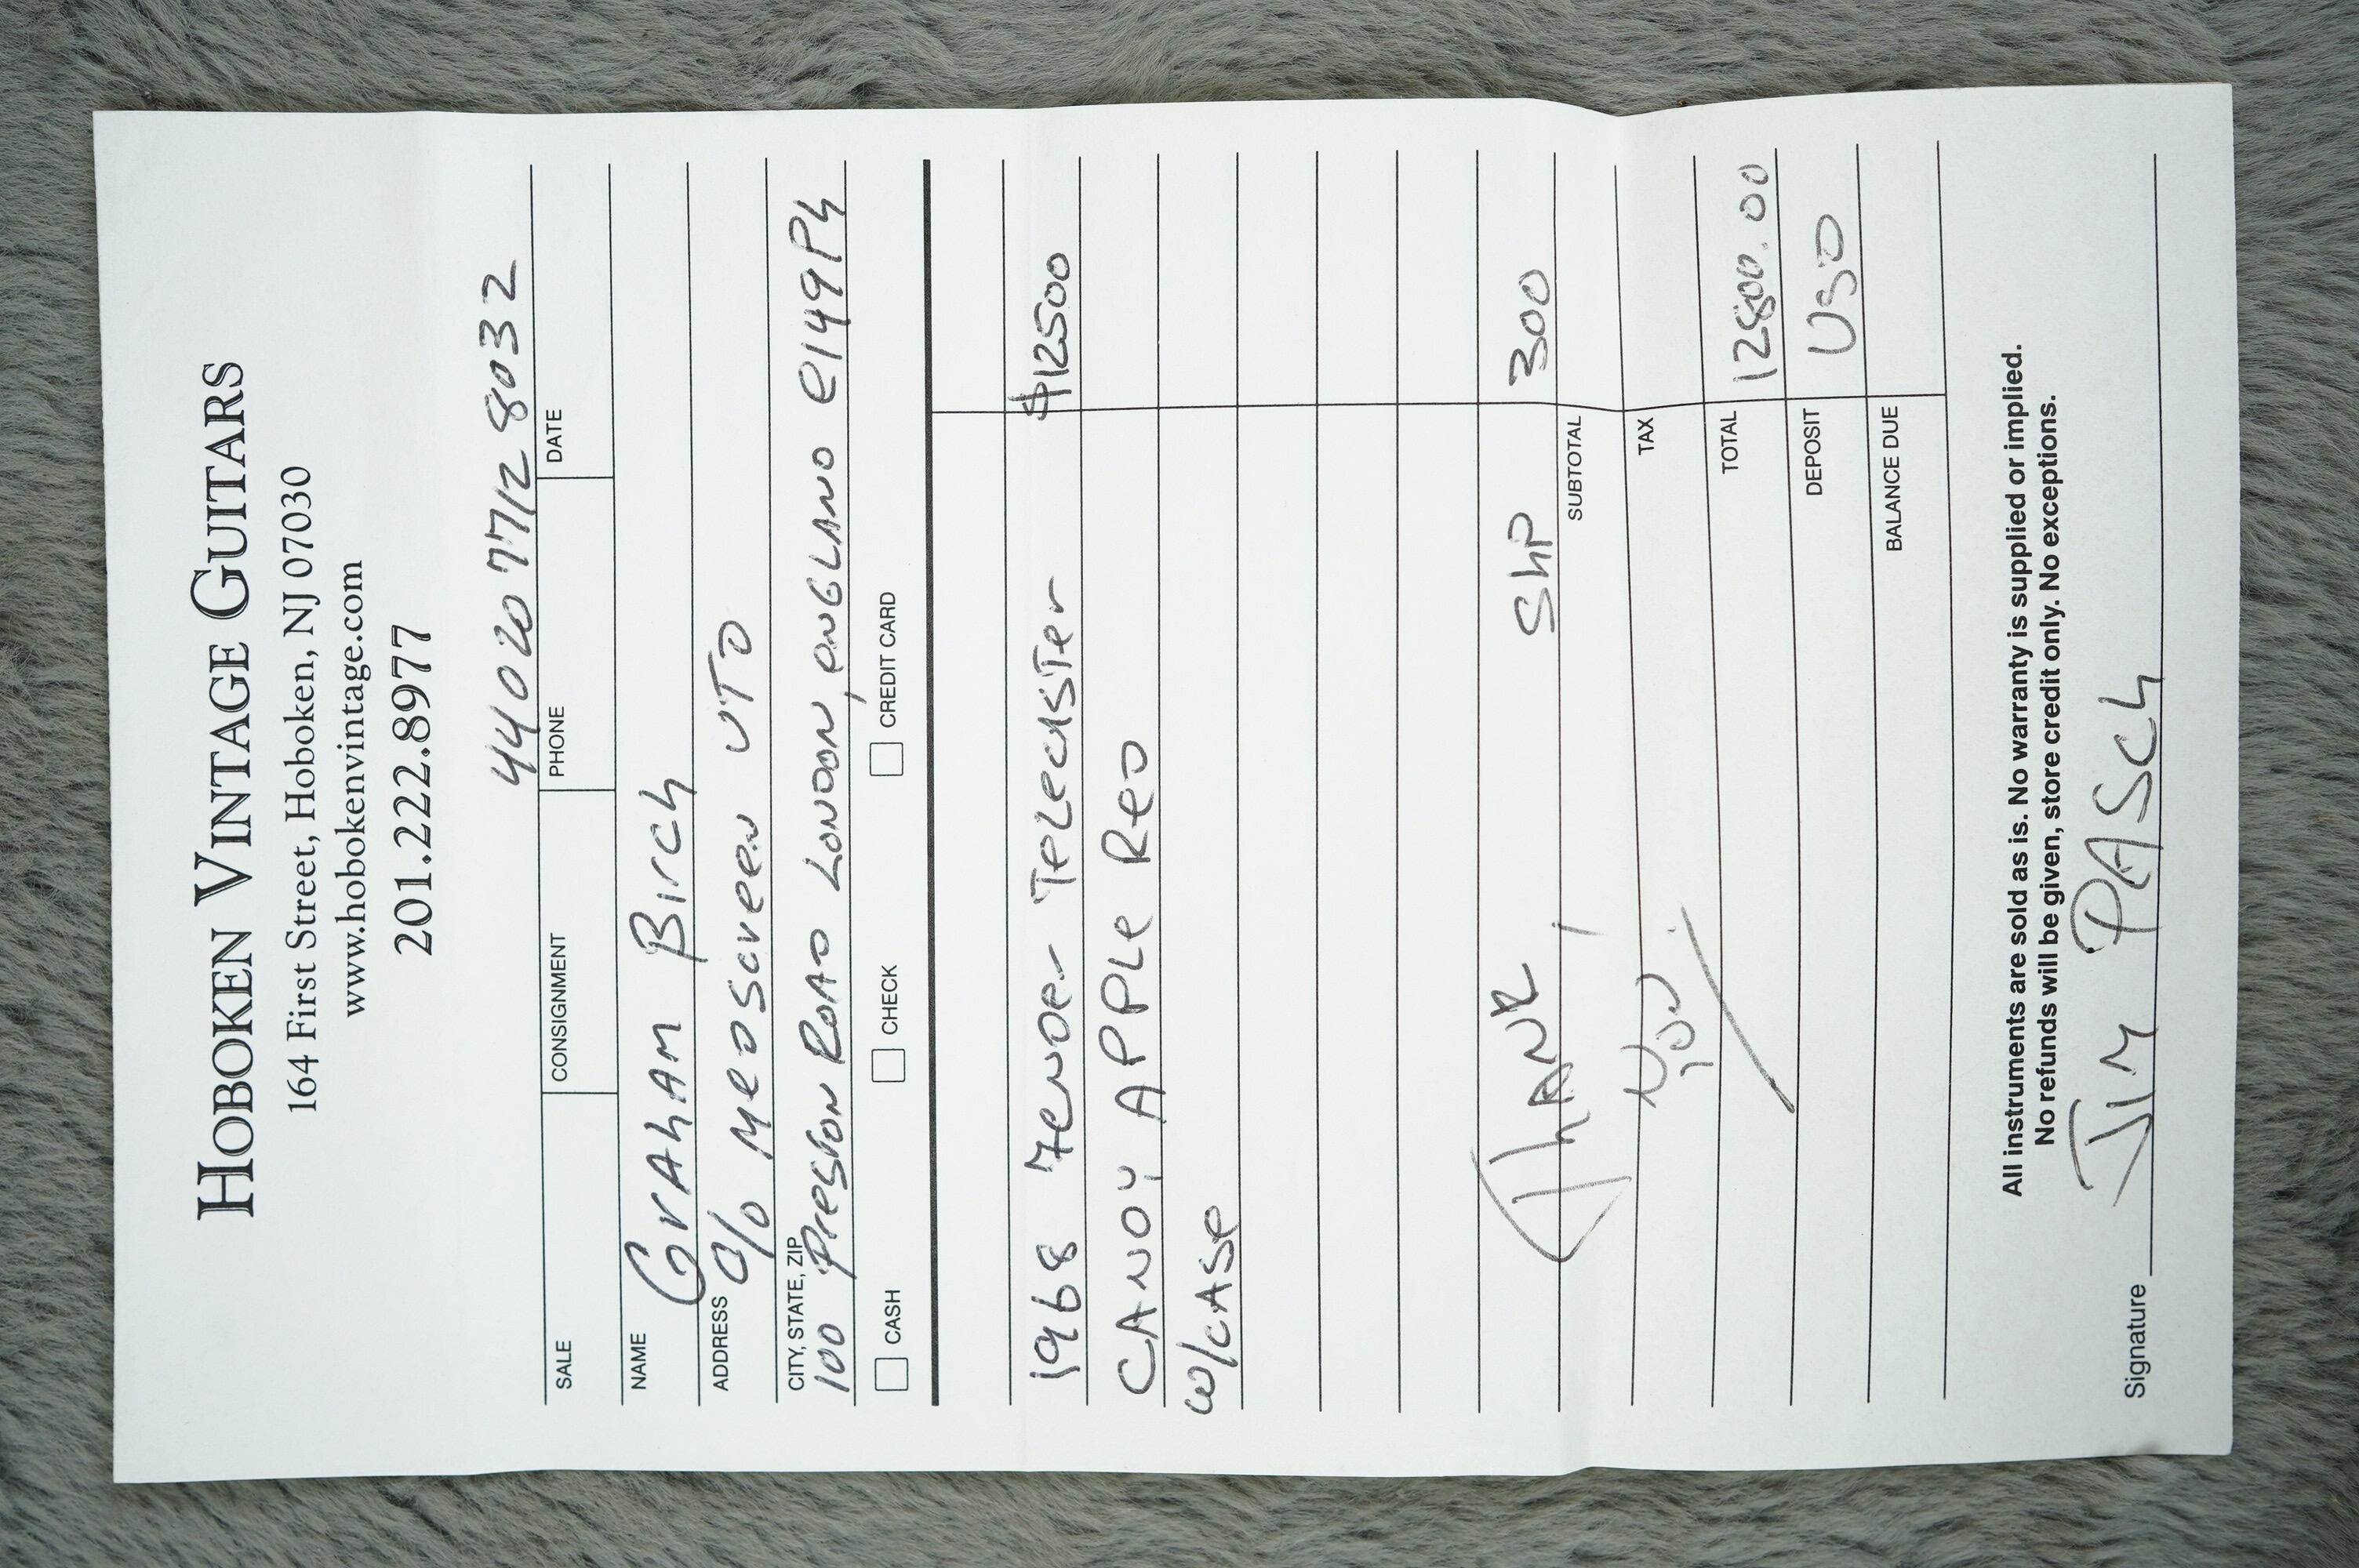 HOBOKEN VINTAGE GUITARS
164 First Street, Hoboken, NJ 07030
www.hobokenvintage.com
201.222.8977
44 020 7712 8032
SALE CONSIGNMENT PHONE DATE
NAME Graham Birch
ADDRESS c/o Medscreen LTD
CITY, STATE, ZIP
100 Preston Road London, England E149Ph
CASH CHECK CREDIT CARD
1968 Fender Telecaster $12500
CANDY APPLE Red
w/case
Thank Ship 300
You SUBTOTAL
TAX
TOTAL 12800.00
DEPOSIT USD
BALANCE DUE
All instruments are sold as is. No warranty is supplied or implied.
No refunds will be given, store credit only. No exceptions.
Signature Jim PASch